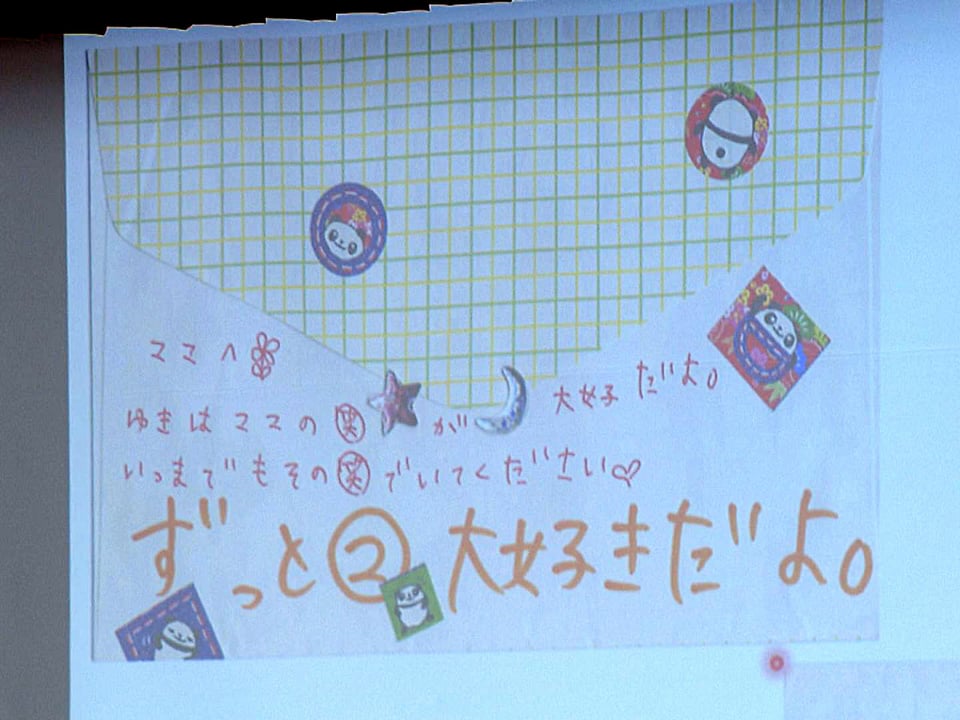 ママへ
ゆきはママの笑が大好だよ。
いつまでもその笑でいてください♡
ずっと②大好きだよ。